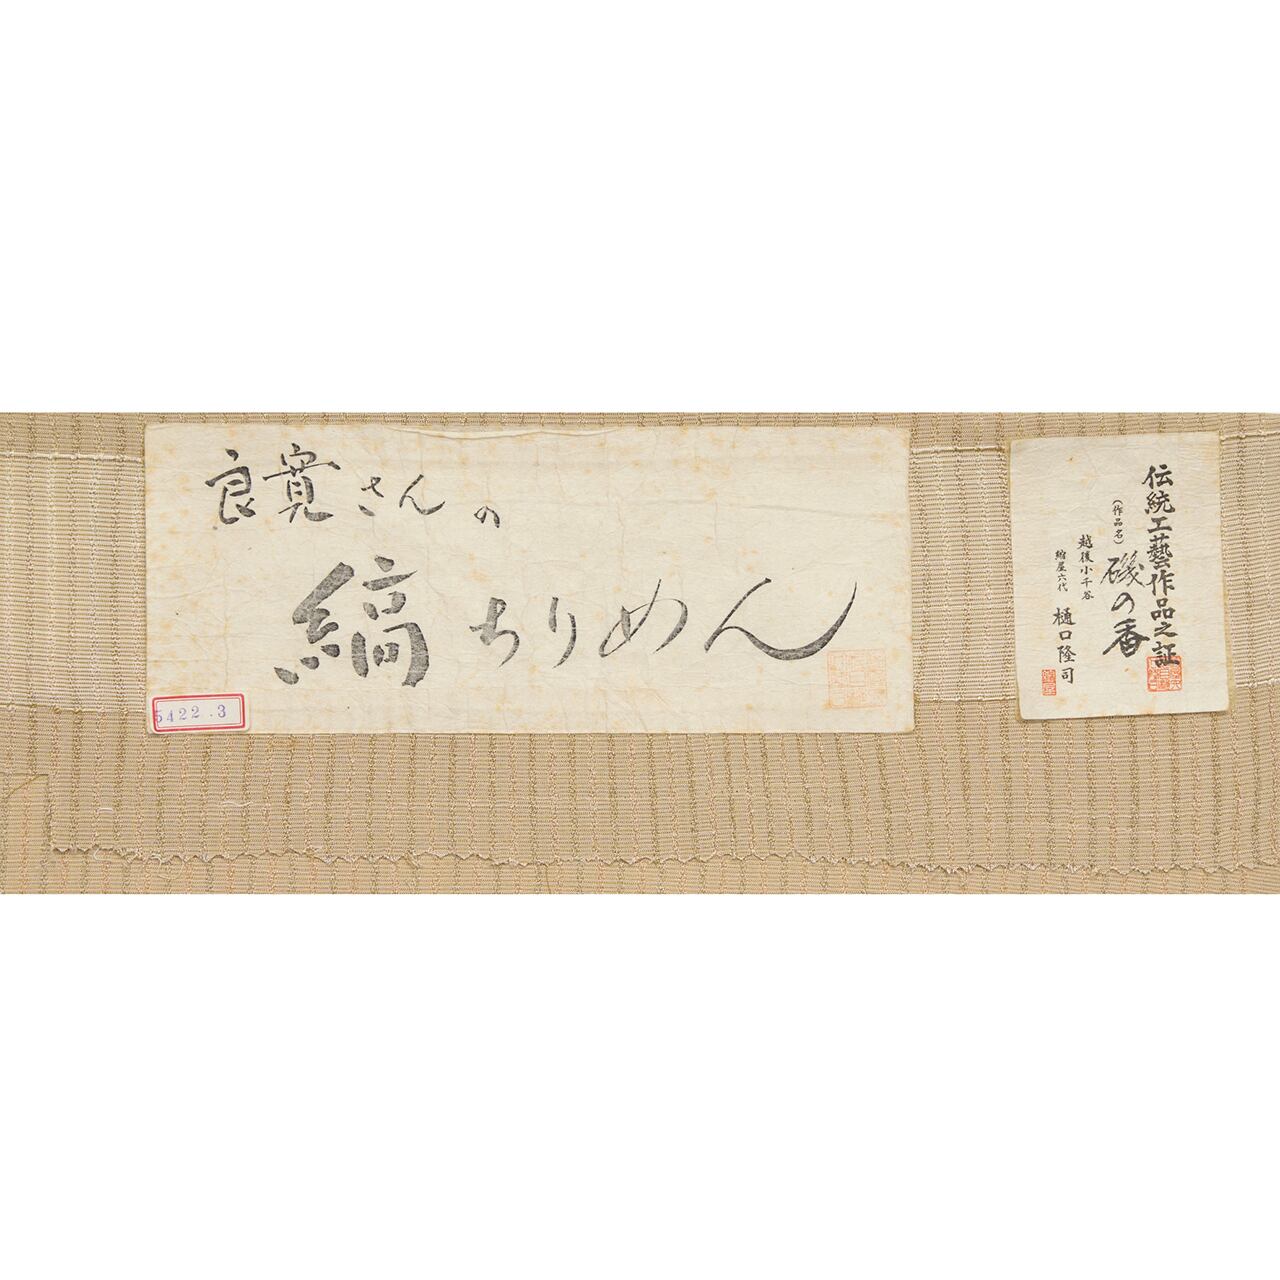 良寛さんの
縞ちりめん
5422.3
伝統工藝作品之証
(作品名)
磯の香
越後小千谷
縮屋六代
樋口隆司